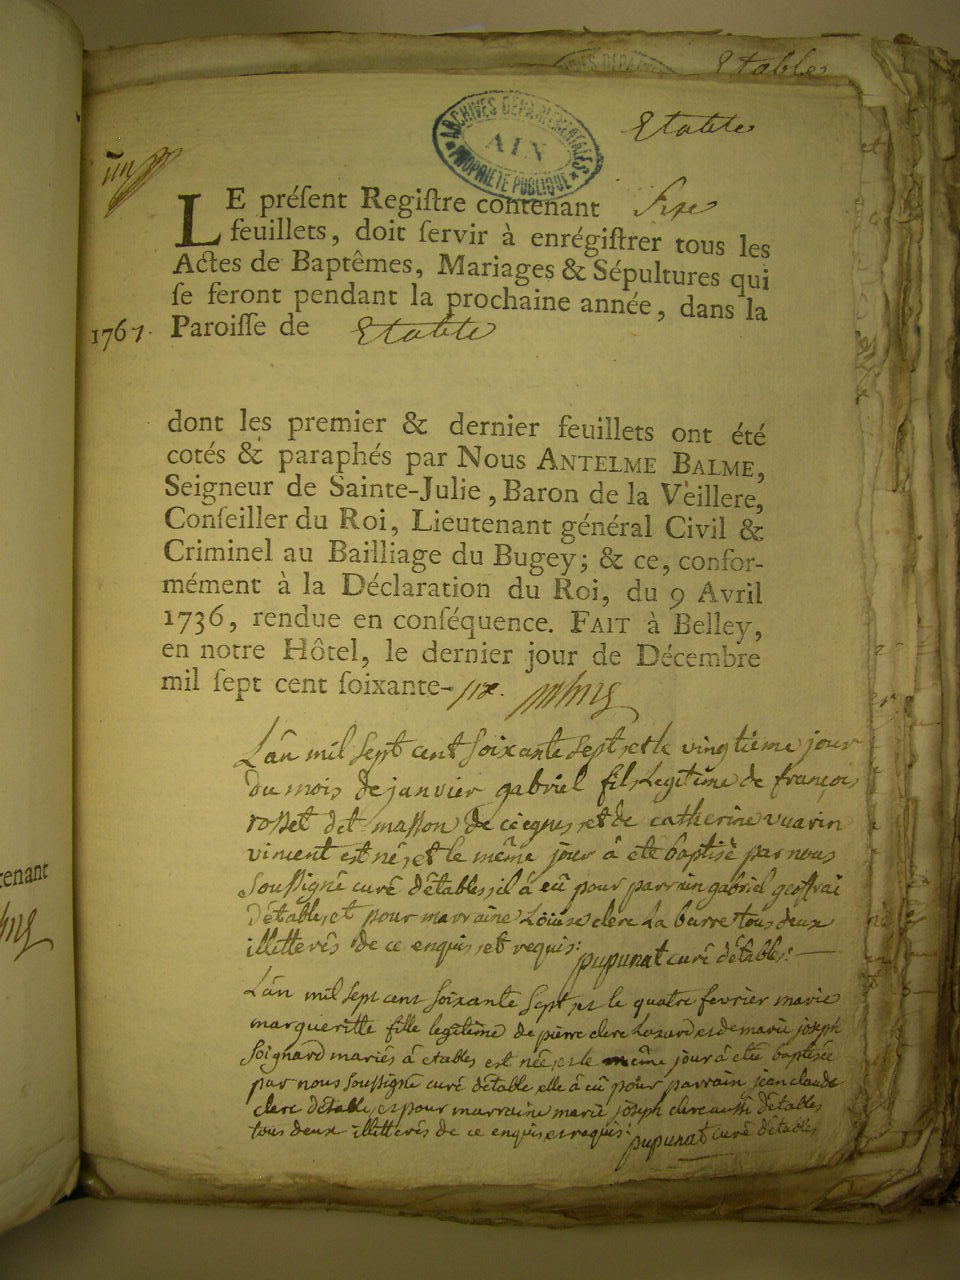 Etables
ARCHIVES DÉPARTEMENTALES
AIN
PROPRIÉTÉ PUBLIQUE
Etable
un
LE préſent Regiſtre contenant Six
feuillets, doit ſervir à enrégiſtrer tous les
Actes de Baptêmes, Mariages & Sépultures qui
ſe feront pendant la prochaine année, dans la
1767. Paroiſſe de Etable
dont les premier & dernier feuillets ont été
cotés & paraphés par Nous ANTELME BALME,
Seigneur de Sainte-Julie, Baron de la Veillere,
Conſeiller du Roi, Lieutenant général Civil &
Criminel au Bailliage du Bugey; & ce, confor-
mément à la Déclaration du Roi, du 9 Avril
1736, rendue en conſéquence. FAIT à Belley,
en notre Hôtel, le dernier jour de Décembre
mil ſept cent ſoixante-six.
L'an mil sept cent soixante sept et le vingtième jour
du mois de janvier gabriel fils legitime de françois
rosset dit masson de et de catherine vuarin
vincent est né, et le même jour à eté baptisé par nous
soussigné curé d'etables, il à eû pour parrain gabriel geoffrai
d'etables et pour marraine Loüise clerc La barre tous deux
illitterés de ce enquis et requis: pupunat curé d'etables:
L'an mil sept cent soixante sept et le quatre fevrier marie
margueritte fille legitime de pierre clerc et de marie joseph
soignard mariés à etables est née, et le même jour à eté baptisée
par nous soussigné curé d'etable elle à eû pour parrain jean claude
clerc d'etables, et pour marraine marie joseph clerc aussi d'etables
tous deux illitterés de ce enquis et requis: pupunat curé d'etables
tenant